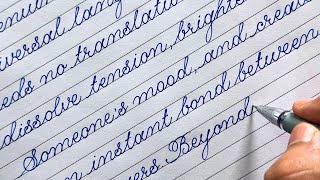 genuin
iversal lang
eeds no translatio
dissolve tension, brighte
Someone's mood, and crea
an instant bond between
ers. Beyond